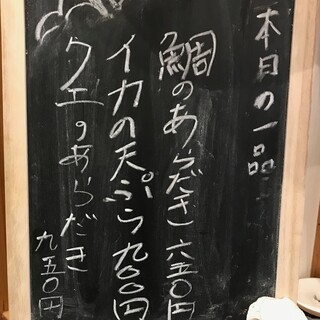 本日の一品
鯛のあらだき 六五〇円
イカの天ぷら 九〇〇円
クエのあらだき 九五〇円